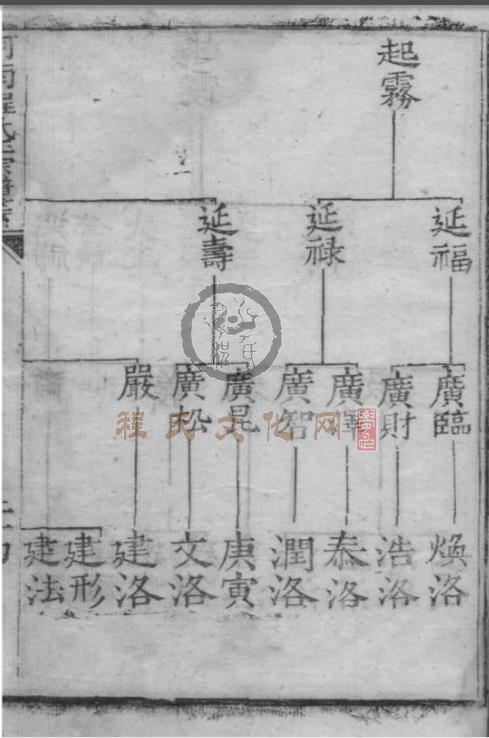 起霧
延福
延禄
延壽
廣臨
廣財
廣澤
廣智
廣昆
廣松
嚴
煥洛
浩洛
泰洛
潤洛
庚寅
文洛
建洛
建形
建法
程氏文化网